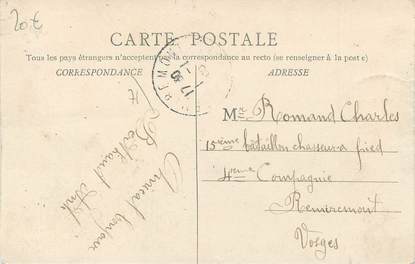 20 €
CARTE POSTALE
Tous les pays étrangers n'acceptent pas la correspondance au recto (se renseigner à la poste)
CORRESPONDANCE
ADRESSE
REMI
17
71
Mr Romand Charles
15ième bataillon chasseur a pied
4ième Compagnie
Remiremont
Vosges
Amical bonjour